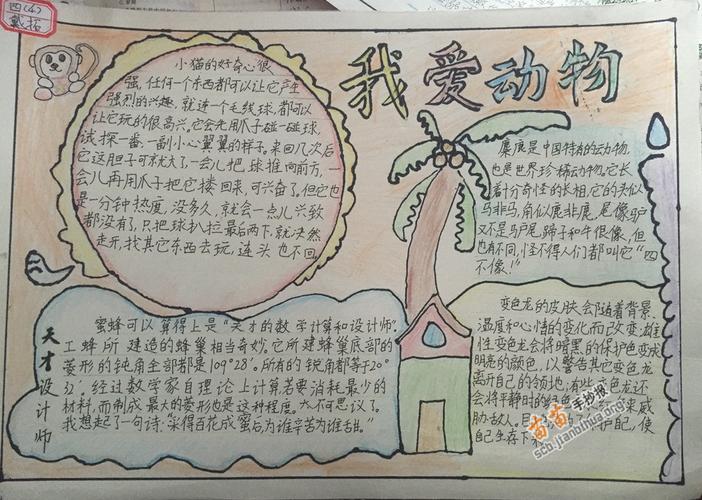 四(4)
戴拓
我爱动物
小猫的好奇心很
强,任何一个东西都可以让它产生
强烈的兴趣,就连一个毛线球,都可以
让它玩的很高兴。它会先用爪子碰一碰球,
试探一番,一副小心翼翼的样子。来回几次后
它这胆子可就大了,一会儿把球推向前方,一
会儿再用爪子把它搂回来,可兴奋了。但它也
是一分钟热度,没多久,就会一点儿兴致
都没有了,只把球扒拉最后两下,就决然
走开,找其它东西去玩,连头也不回。
麋鹿是中国特有的动物,
也是世界珍稀动物。它长
着十分奇怪的长相,它的头似
马非马,角似鹿非鹿,尾像驴
又不是马尾,蹄子和牛很像,但
也有不同,怪不得人们都叫它“四
不像!”
天才设计师
蜜蜂可以算得上是“天才的数学计算和设计师”。
工蜂所建造的蜂巢相当奇妙。它所建蜂巢底部的
菱形的钝角全部都是109°28′。所有的锐角都等于20°
32′。经过数学家自理论上计算若要消耗最少的
材料,而制成最大的菱形也是这种程度。太不可思议了。
我想起了一句诗:“采得百花成蜜后为谁辛苦为谁甜。”
变色龙的皮肤会随着背景、
温度和心情的变化而改变:雄
性变色龙会将暗黑的保护色变成
明亮的颜色,以警告其它变色龙
离开自己的领地;有些变色龙还
会将平静时的绿色
来威
胁敌人。目
护配,使
自己生存下
苗苗手抄报
scb.jianbihua.org